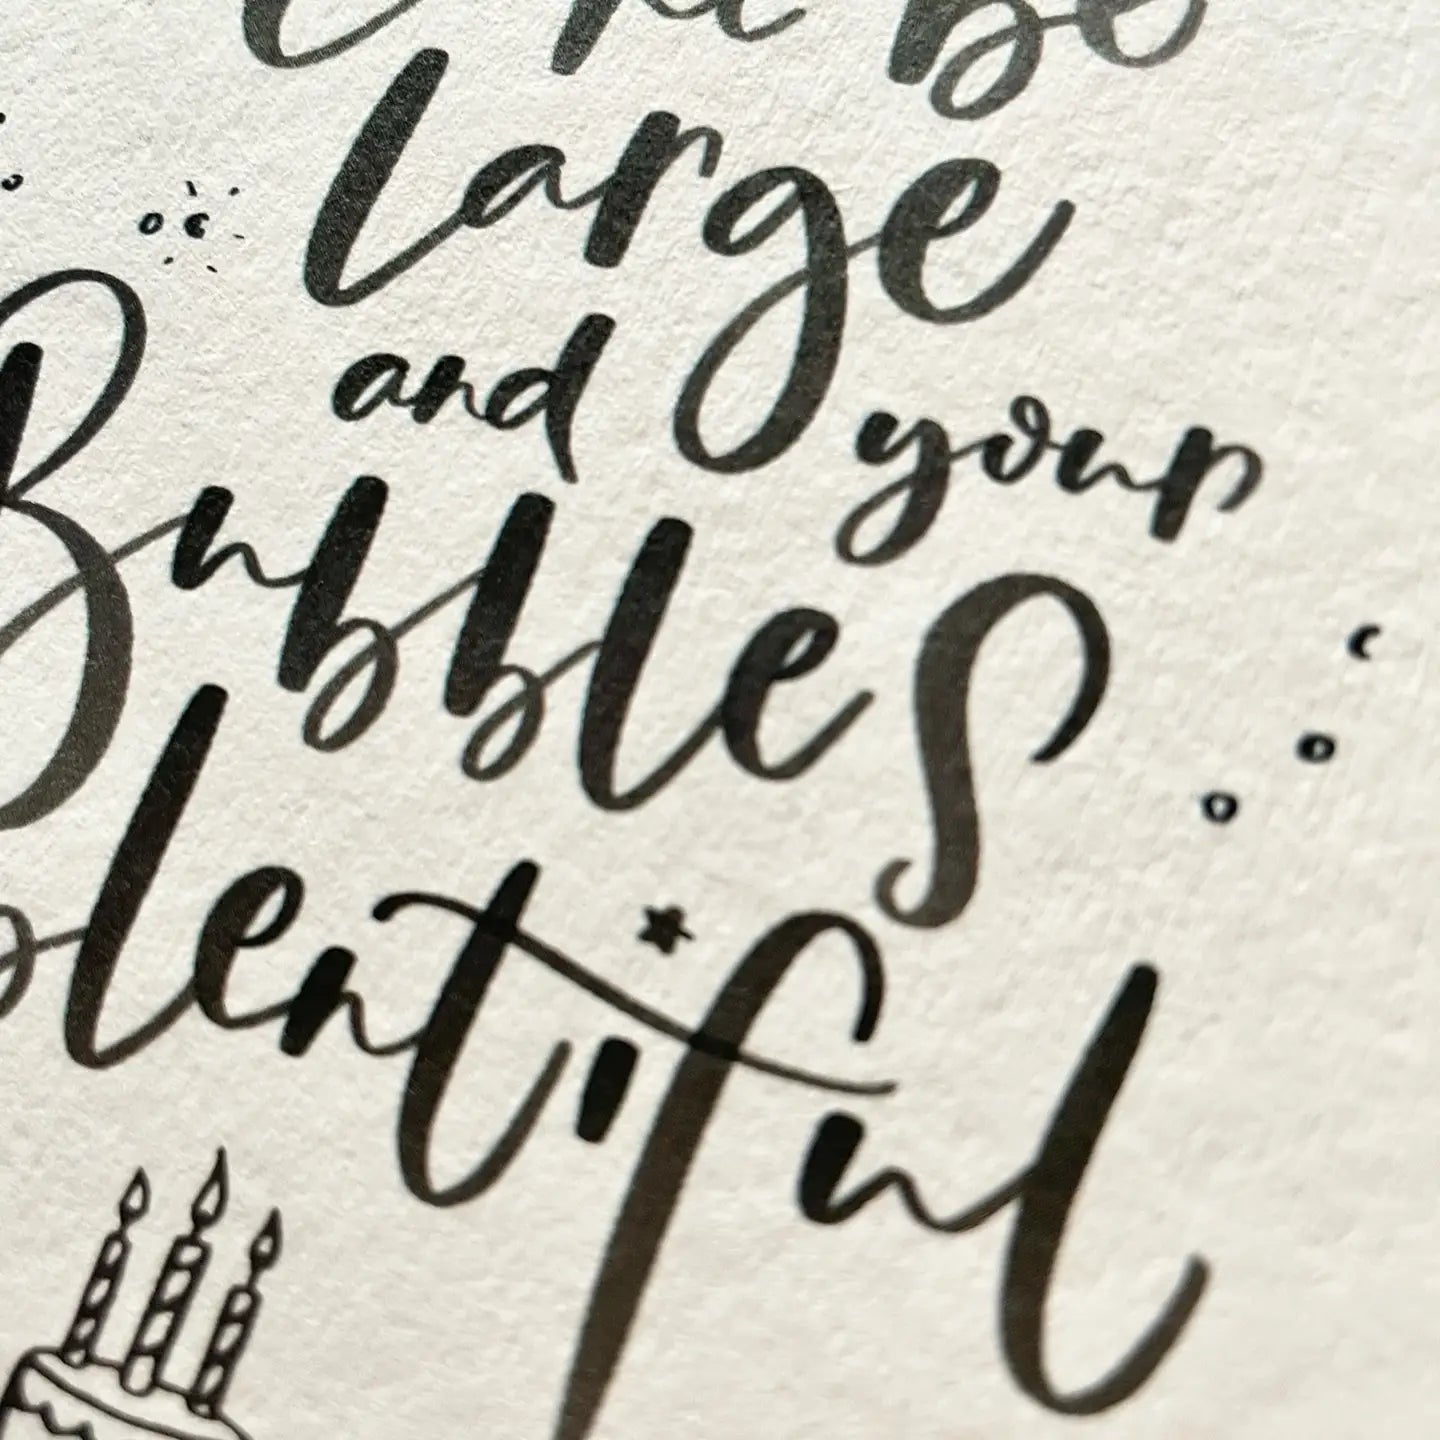 Be
large
and your
Bubbles
plentiful